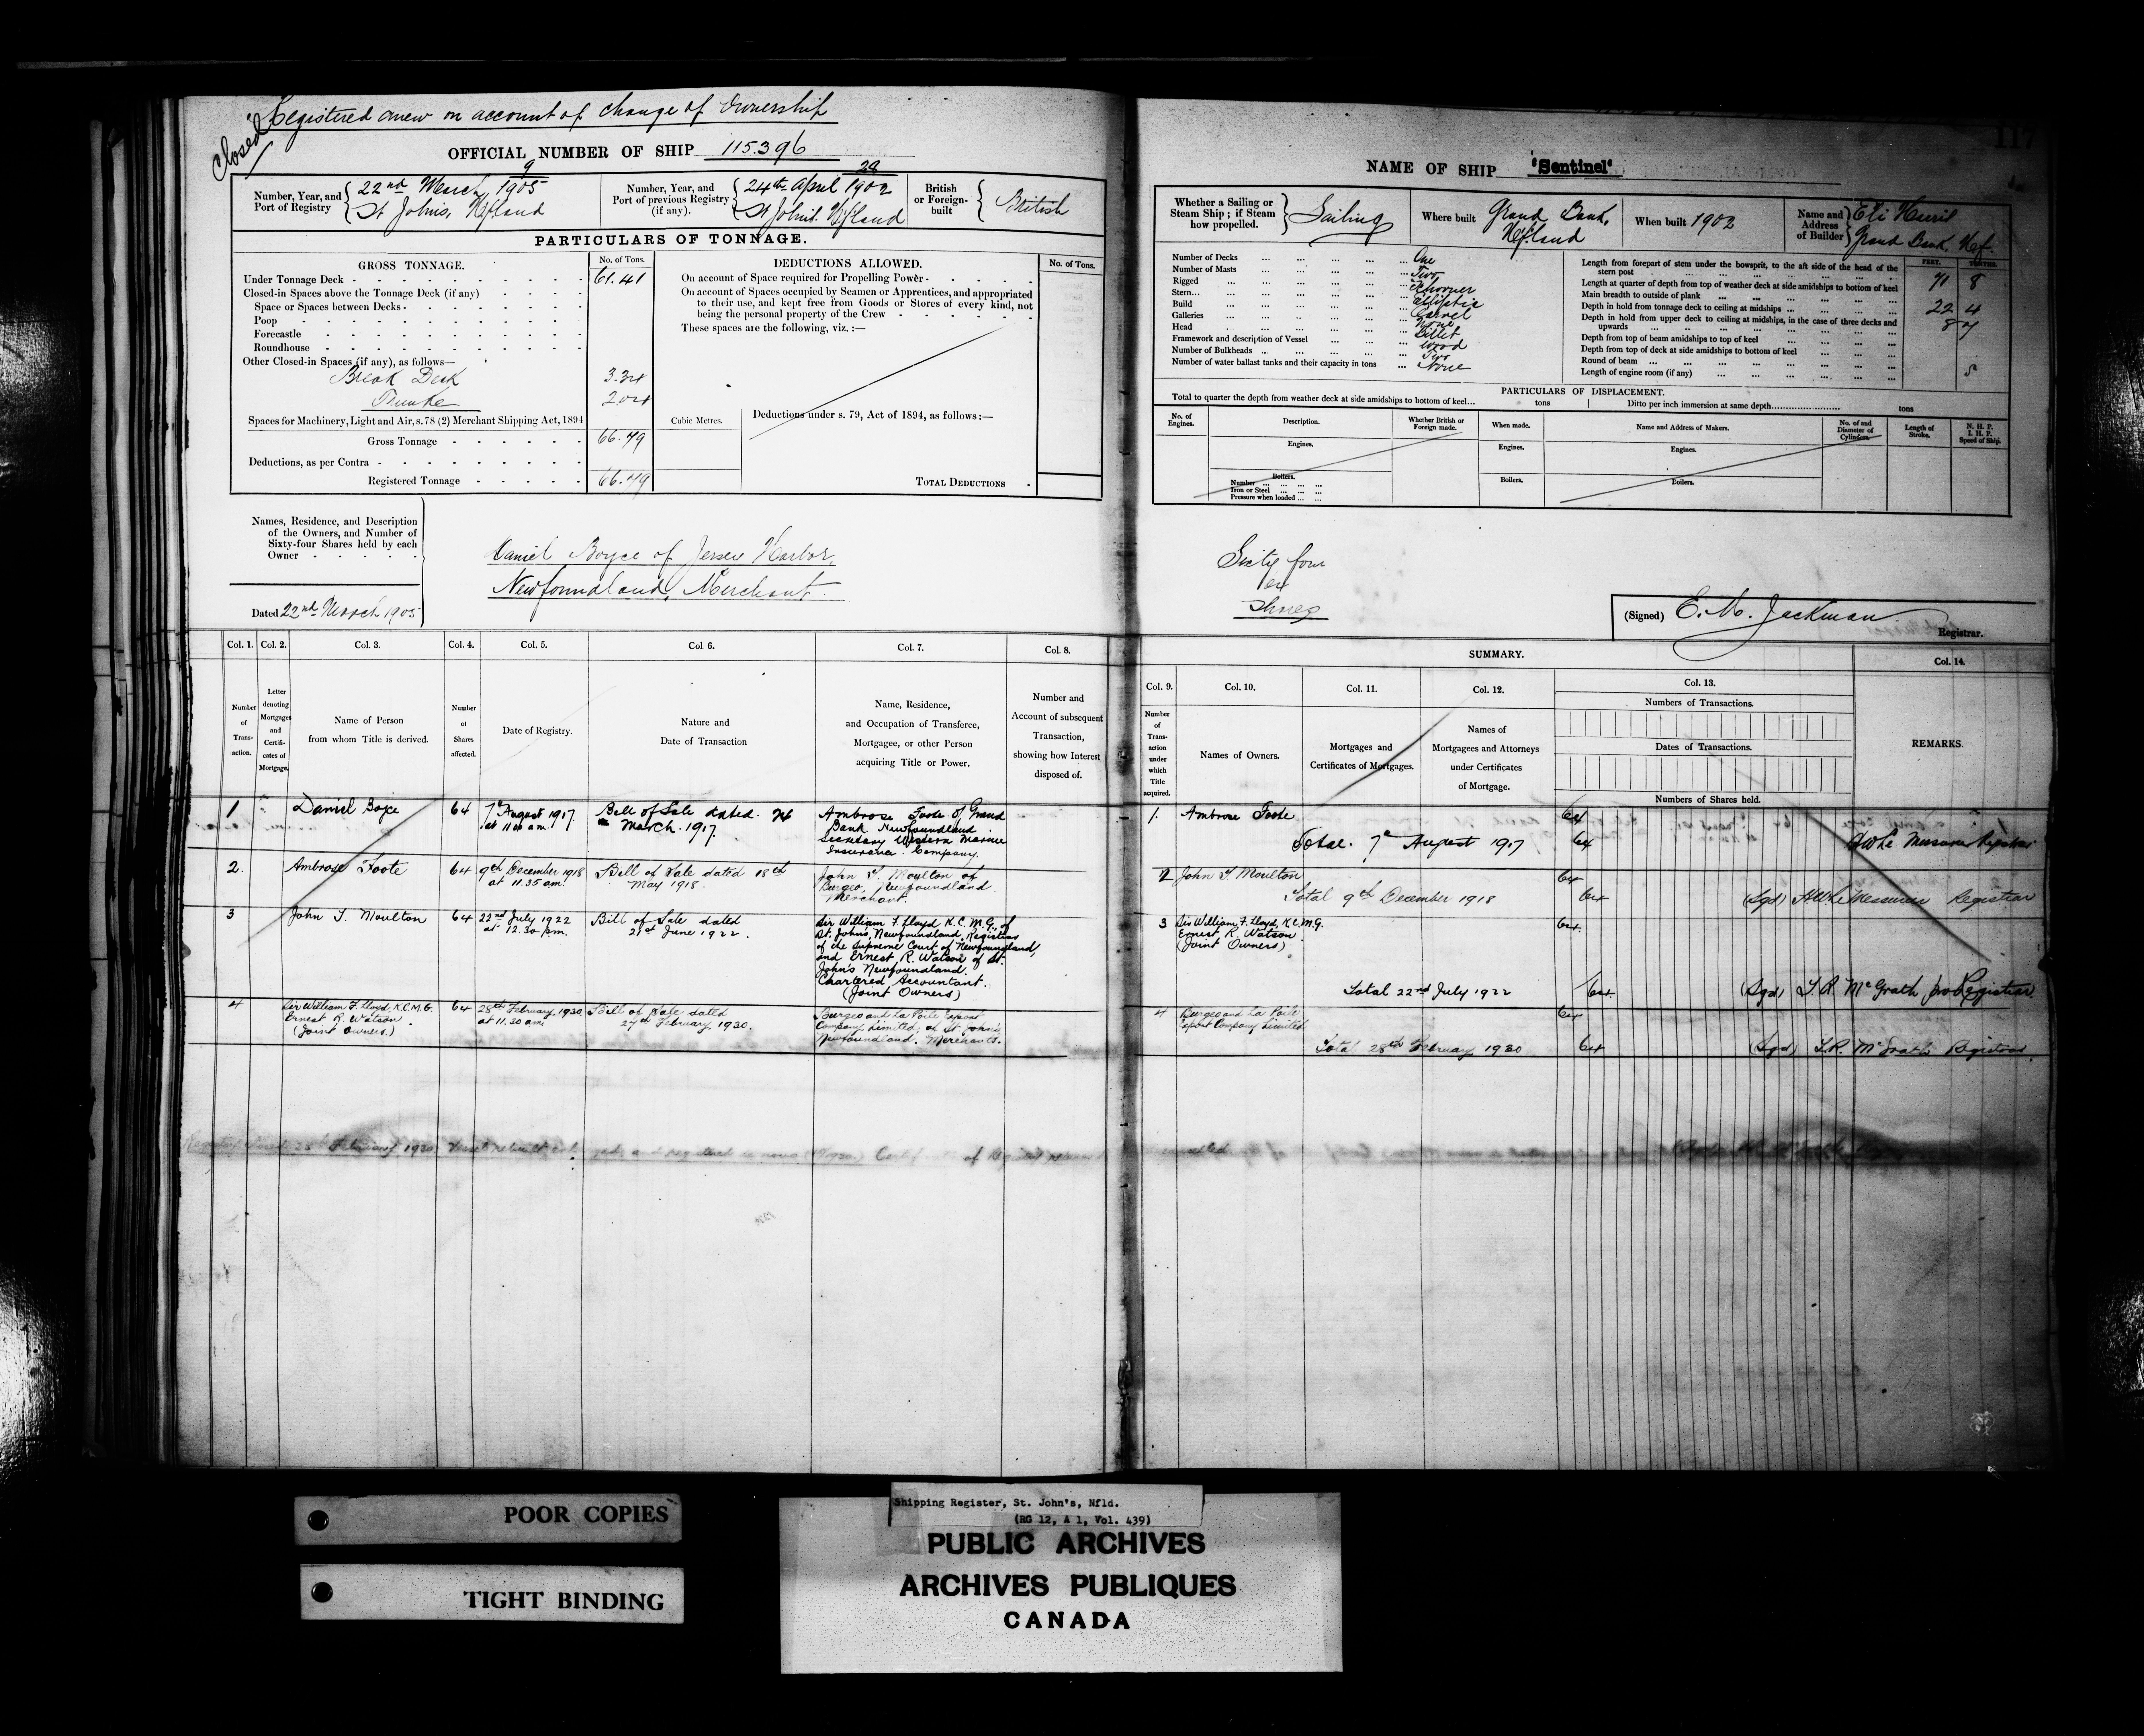 Closed
Registered anew on account of change of Ownership
OFFICIAL NUMBER OF SHIP 115.396
Number, Year, and Port of Registry
9
22nd March, 1905
St Johns, Nfland
Number, Year, and Port of previous Registry (if any).
29
24th April 1902
St Johns. Nfland
British or Foreign-built
British
PARTICULARS OF TONNAGE.
GROSS TONNAGE.
No. of Tons.
Under Tonnage Deck 61.41
Closed-in Spaces above the Tonnage Deck (if any)
Space or Spaces between Decks
Poop
Forecastle
Roundhouse
Other Closed-in Spaces (if any), as follows—
Break Deck 3.34
Trunke 2.04
Spaces for Machinery, Light and Air, s. 78 (2) Merchant Shipping Act, 1894
Gross Tonnage 66.79
Deductions, as per Contra
Registered Tonnage 66.79
Cubic Metres.
DEDUCTIONS ALLOWED.
No. of Tons.
On account of Space required for Propelling Power
On account of Spaces occupied by Seamen or Apprentices, and appropriated
to their use, and kept free from Goods or Stores of every kind, not
being the personal property of the Crew
These spaces are the following, viz. :—
Deductions under s. 79, Act of 1894, as follows :—
TOTAL DEDUCTIONS
Names, Residence, and Description
of the Owners, and Number of
Sixty-four Shares held by each
Owner
Daniel Boyce of Jersey Harbor,
Newfoundland, Merchant
Dated 22nd March 1905
Col. 1. Col. 2. Col. 3. Col. 4. Col. 5. Col. 6. Col. 7. Col. 8.
Number of Trans-action.
Letter denoting Mortgages and Certifi-cates of Mortgage.
Name of Person from whom Title is derived.
Number of Shares affected.
Date of Registry.
Nature and Date of Transaction
Name, Residence, and Occupation of Transferee, Mortgagee, or other Person acquiring Title or Power.
Number and Account of subsequent Transaction, showing how Interest disposed of.
1 Daniel Boyce 64
7th August 1917.
at 11 00 a m.
Bill of Sale dated
March. 1917.
Ambrose Foote of Grand
Bank Newfoundland
Secretary Western Marine
Insurance Company.
2. Ambrose Foote 64
9th December 1918
at 11.35 am.
Bill of Sale dated 18th
May 1918.
John T. Moulton of
Burgeo, Newfoundland
Merchant.
3 John T. Moulton 64
22nd July 1922
at 12.30 p.m.
Bill of Sale dated
21st June 1922.
Sir William F. Lloyd K.C.M.G., of
St. John's, Newfoundland, Registrar
of the Supreme Court of Newfoundland,
and Ernest R. Watson of St.
John's Newfoundland.
Chartered Accountant.
(Joint Owners)
4
Sir William F. Lloyd, K.C.M.G.
Ernest R. Watson
(Joint Owners.)
64
28th February, 1930
at 11.30 am.
Bill of Sale dated
27th February, 1930.
Burgeo and La Poile Export
Company Limited, of St John's
Newfoundland. Merchants.
28th February 1930 Vessel rebuilt and registered de novo
117
NAME OF SHIP "Sentinel"
Whether a Sailing or Steam Ship ; if Steam how propelled.
Sailing
Where built
Grand Bank,
Nfland
When built 1902
Name and Address of Builder
Eli Harris
Grand Bank, Nef.
Number of Decks One
Number of Masts Two
Rigged Schooner
Stern Elliptic
Build Carvel
Galleries None
Head Billet
Framework and description of Vessel Wood
Number of Bulkheads Two
Number of water ballast tanks and their capacity in tons None
FEET. TENTHS.
Length from forepart of stem under the bowsprit, to the aft side of the head of the
stern post 71 8
Length at quarter of depth from top of weather deck at side amidships to bottom of keel
Main breadth to outside of plank 22 4
Depth in hold from tonnage deck to ceiling at midships 8 7
Depth in hold from upper deck to ceiling at midships, in the case of three decks and
upwards
Depth from top of beam amidships to top of keel
Depth from top of deck at side amidships to bottom of keel
Round of beam 5
Length of engine room (if any)
PARTICULARS OF DISPLACEMENT.
Total to quarter the depth from weather deck at side amidships to bottom of keel... tons
Ditto per inch immersion at same depth tons
No. of Engines.
Description.
Whether British or Foreign made.
When made.
Name and Address of Makers.
No. of and Diameter of Cylinders.
Length of Stroke.
N. H. P.
I. H. P.
Speed of Ship.
Engines. Engines. Engines.
Boilers. Boilers. Boilers.
Number
Iron or Steel
Pressure when loaded
Sixty four
64
Shares
(Signed) E. M. Jackman
Registrar.
SUMMARY.
Col. 9. Col. 10. Col. 11. Col. 12. Col. 13. Col. 14.
Number of Trans-action under which Title acquired.
Names of Owners.
Mortgages and Certificates of Mortgages.
Names of Mortgagees and Attorneys under Certificates of Mortgage.
Numbers of Transactions.
Dates of Transactions.
Numbers of Shares held.
REMARKS.
1. Ambrose Foote 64
Total. 7th August 1917 64
H W Le Messurier Registrar
2 John T Moulton 64
Total 9th December 1918 64
(Sgd) H W Le Messurier Registrar
3 Sir William F. Lloyd, K.C.M.G. 64
Ernest R. Watson
(Joint Owners)
Total 22nd July 1922 64
(Sgd) T.R. McGrath pro Registrar
4 Burgeo and La Poile 64
Export Company Limited
Total 28th February 1930 64
(Sgd) T.R. McGrath Registrar.
POOR COPIES
TIGHT BINDING
Shipping Register, St. John's, Nfld.
(RG 12, A 1, Vol. 439)
PUBLIC ARCHIVES
ARCHIVES PUBLIQUES
CANADA